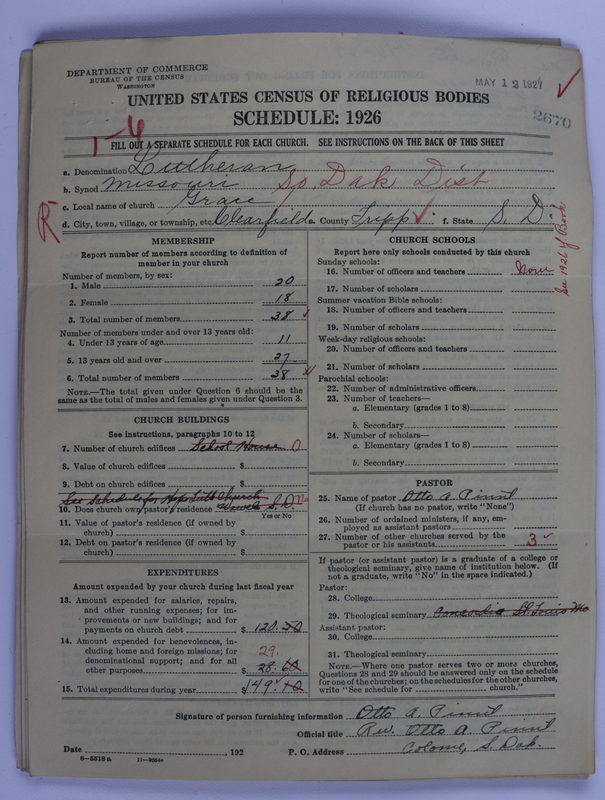 DEPARTMENT OF COMMERCE
BUREAU OF THE CENSUS
WASHINGTON
MAY 12 1927
UNITED STATES CENSUS OF RELIGIOUS BODIES
SCHEDULE: 1926
2670
1-6
FILL OUT A SEPARATE SCHEDULE FOR EACH CHURCH. SEE INSTRUCTIONS ON THE BACK OF THIS SHEET
a. Denomination Lutheran
b. Synod Missouri So Dak Dist
c. Local name of church Grace
d. City, town, village, or township, etc. Clearfield e. County Tripp f. State S. D.
R
See 1926 Book
MEMBERSHIP
Report number of members according to definition of
member in your church
Number of members, by sex:
1. Male 20
2. Female 18
3. Total number of members 38
Number of members under and over 13 years old:
4. Under 13 years of age 11
5. 13 years old and over 27
6. Total number of members 38
NOTE.—The total given under Question 6 should be the
same as the total of males and females given under Question 3.
CHURCH BUILDINGS
See instructions, paragraphs 10 to 12
7. Number of church edifices School House 0
8. Value of church edifices $
9. Debt on church edifices $
See Schedule for Church
10. Does church own pastor's residence S. D. No
Yes or No
11. Value of pastor's residence (if owned by
church) $
12. Debt on pastor's residence (if owned by
church) $
EXPENDITURES
Amount expended by your church during last fiscal year
13. Amount expended for salaries, repairs,
and other running expenses; for im-
provements or new buildings; and for
payments on church debt $ 120.50
14. Amount expended for benevolences, in-
cluding home and foreign missions; for 29.
denominational support; and for all
other purposes 28.60
15. Total expenditures during year $ 149.10
CHURCH SCHOOLS
Report here only schools conducted by this church
Sunday schools:
16. Number of officers and teachers None
17. Number of scholars
Summer vacation Bible schools:
18. Number of officers and teachers
19. Number of scholars
Week-day religious schools:
20. Number of officers and teachers
21. Number of scholars
Parochial schools:
22. Number of administrative officers
23. Number of teachers—
a. Elementary (grades 1 to 8)
b. Secondary
24. Number of scholars—
a. Elementary (grades 1 to 8)
b. Secondary
PASTOR
25. Name of pastor Otto A.
(If church has no pastor, write "None")
26. Number of ordained ministers, if any, em-
ployed as assistant pastors
27. Number of other churches served by the
pastor or his assistants 3
If pastor (or assistant pastor) is a graduate of a college or
theological seminary, give name of institution below. (If
not a graduate, write "No" in the space indicated.)
Pastor:
28. College
29. Theological seminary Concordia St. Louis Mo
Assistant pastor:
30. College
31. Theological seminary
NOTE.—Where one pastor serves two or more churches,
Questions 28 and 29 should be answered only on the schedule
for one of the churches; on the schedules for the other churches,
write "See schedule for church."
Signature of person furnishing information Otto A.
Official title Rev. Otto A.
Date , 192 P. O. Address Colome, S. Dak.
8-5518a 11-9034a